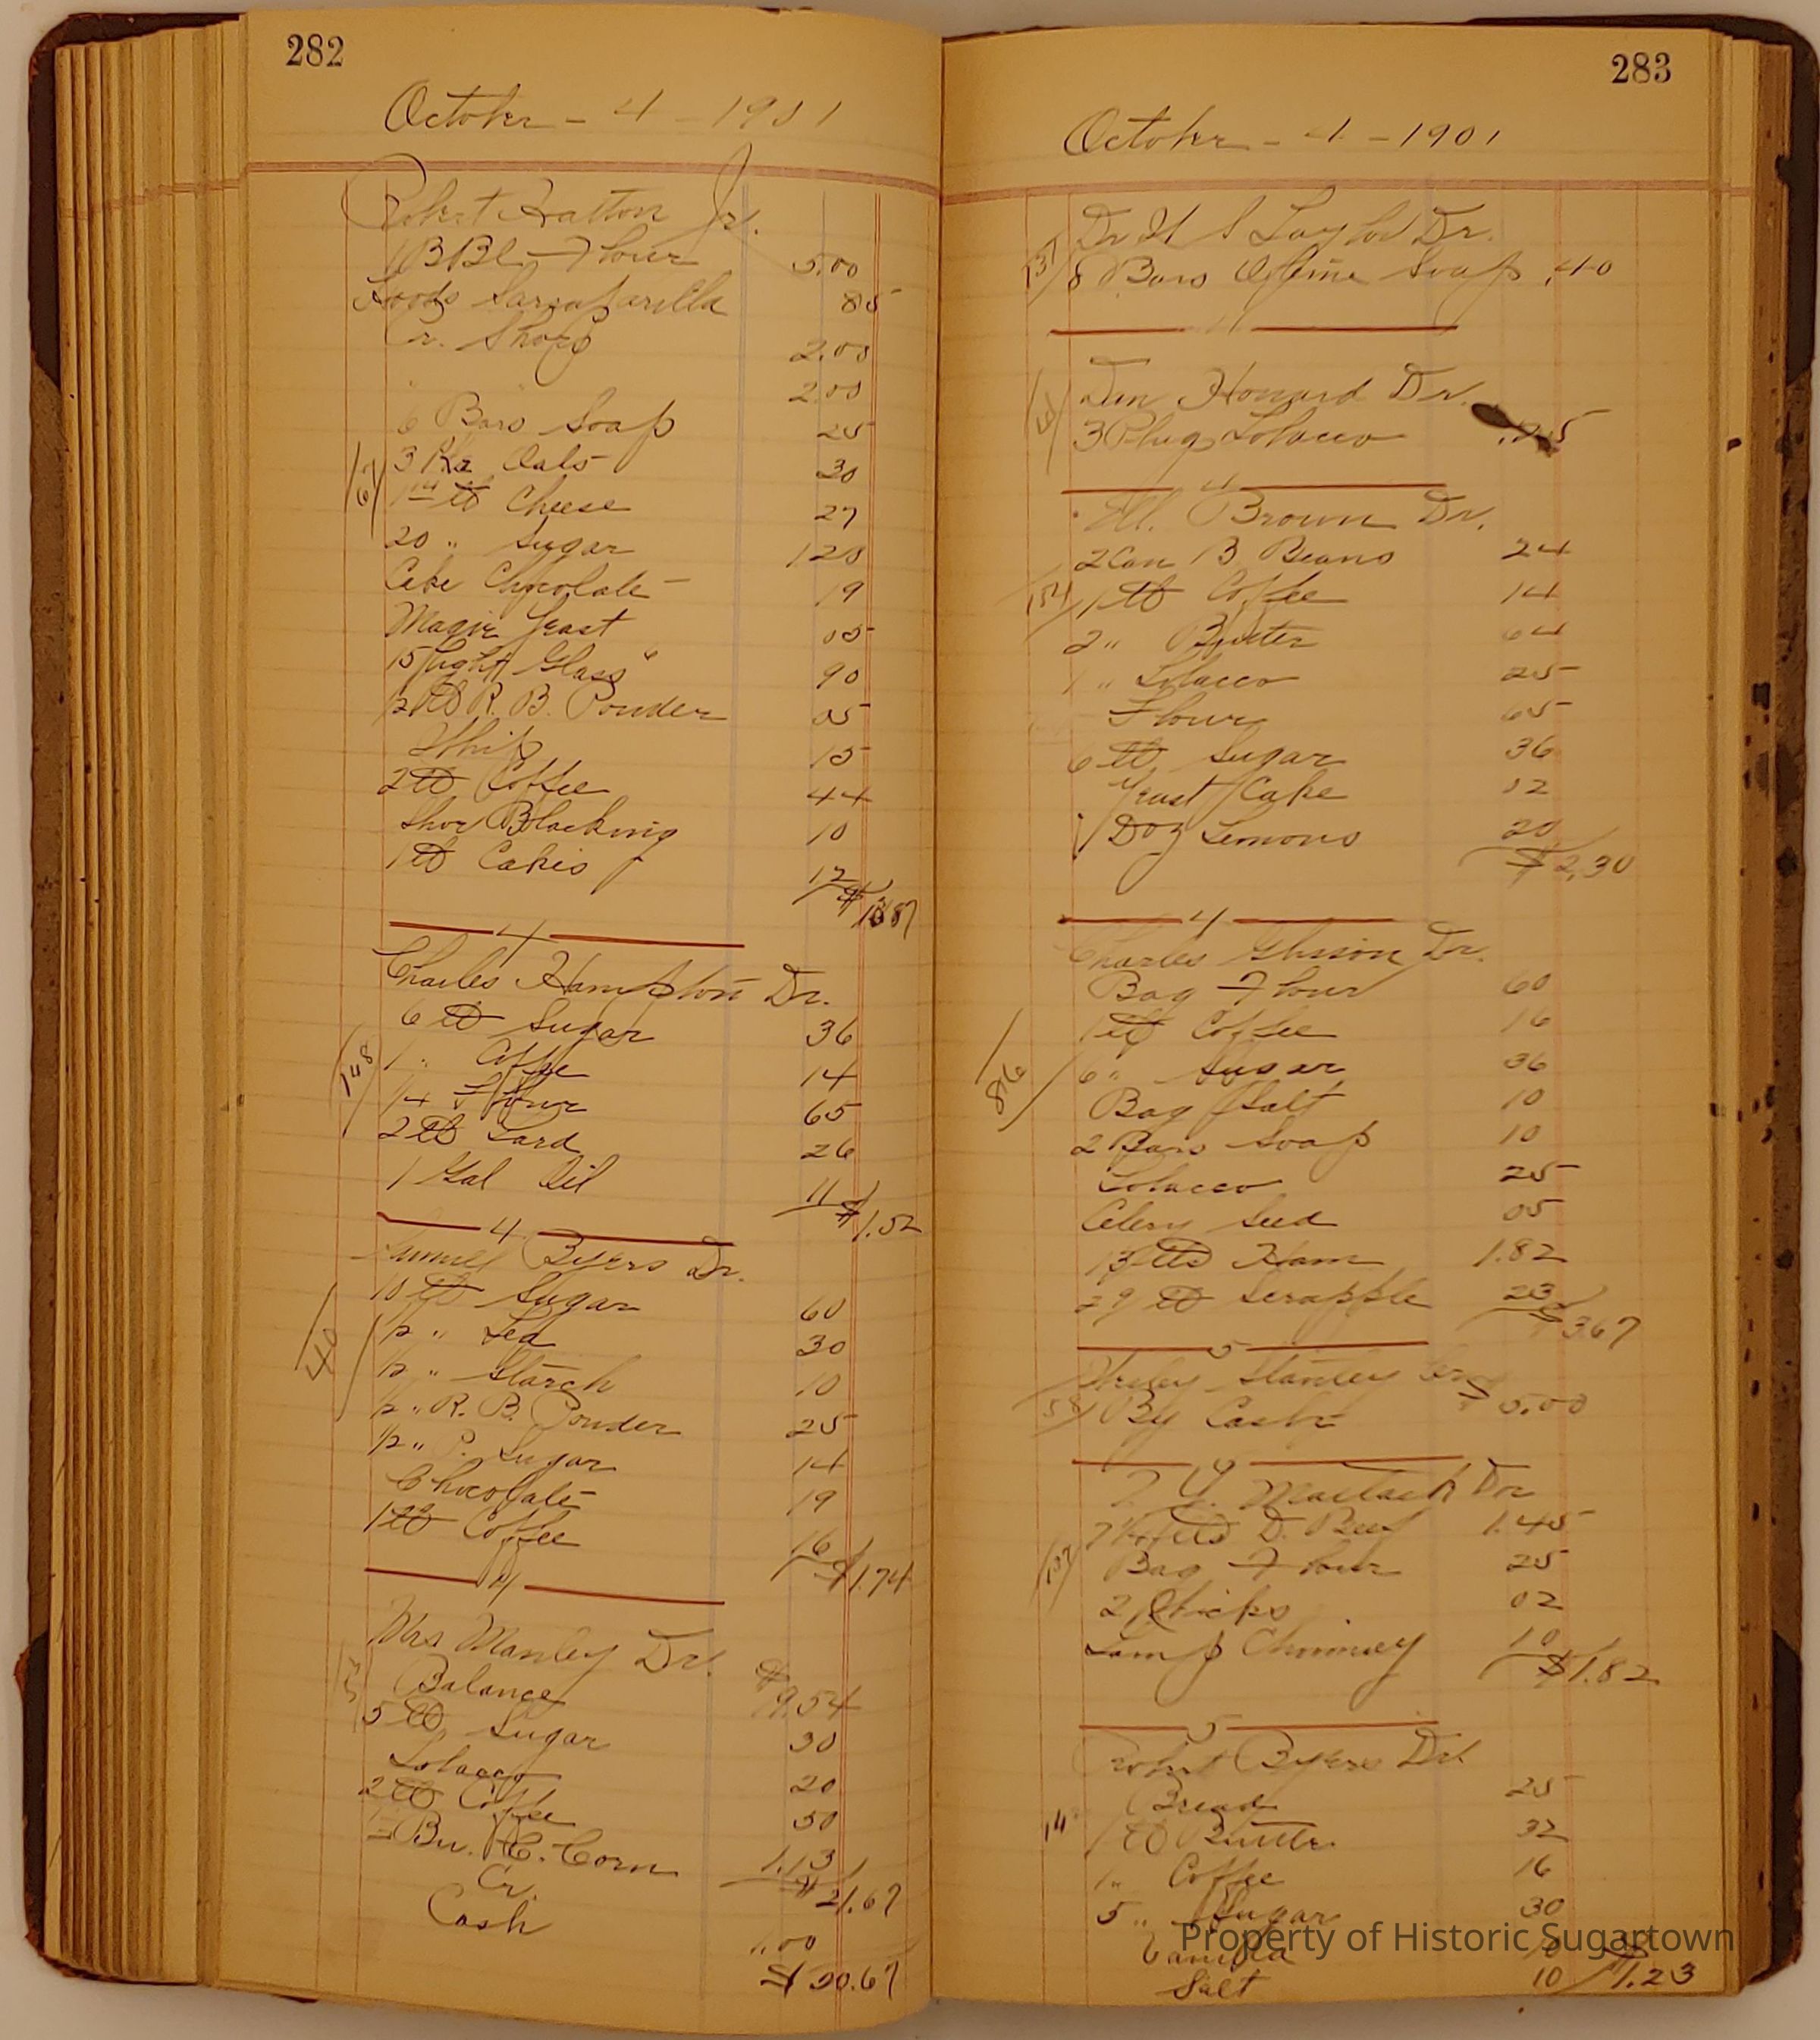 282
October - 4 - 1901
Robert Hatton Jr.
1 BBl Flour 5.00
Hoods Sarsaparilla 85
Pr. Shoes 2.00
" " 2.00
6 Bars Soap 25
67
3 Pks Oats 30
lb Cheese 27
20 " Sugar 120
Cake Chocolate 19
Magic Yeast 05
15 Light Glass 90
1/2 lb R. B. Powder 05
Whip 15
2 lb Coffee 44
Shoe Blacking 10
1 lb Cakes 12
$ 13 87
4
Charles Hampton Dr.
6 lb Sugar 36
148
1 " Coffee 14
1/4 Flour 65
2 lb Lard 26
1 Gal Oil 11
$1.52
4
Byers Dr.
10 lb Sugar 60
40
1/2 " Tea 30
1/2 " Starch 10
1/2 " R. B. Powder 25
1/2 " P. Sugar 14
Chocolate 19
1 lb Coffee 16
$1.74
4
Mrs Manley Dr.
Balance $19.54
5 lb Sugar 30
Tobacco 20
2 lb Coffee 50
Bu. C. Corn 1.13
$21.67
Cr.
Cash 1.00
$20.67
283
October - 4 - 1901
Dr Taylor Dr.
137
8 Bars Oleine Soap .40
4
Howard Dr.
3 Plug Tobacco .25
4
Wm. Brown Dr.
2 Can B Beans 24
154
1 lb Coffee 14
2 " Butter 64
1 " Tobacco 25
Flour 65
6 lb Sugar 36
Yeast Cake 12
1 Doz Lemons 20
$2.30
4
Charles Dr.
Bag Flour 60
1 lb Coffee 16
86
6 " Sugar 36
Bag Salt 10
2 Bars Soap 10
Tobacco 25
Celery Seed 05
13 lbs Ham 1.82
lb Scrapple 23
$3.67
5
Stanley Cr.
58
By Cash $5.00
4
Dr
lbs D. Beef 1.45
137
Bag Flour 25
2 Wicks 02
Lamp Chimney 10
$1.82
5
Robert Byers Dr.
Bread 25
14
1 lb Butter 32
1 " Coffee 16
5 " Sugar 30
Vanilla 10
Salt 10 $1.23
Property of Historic Sugartown